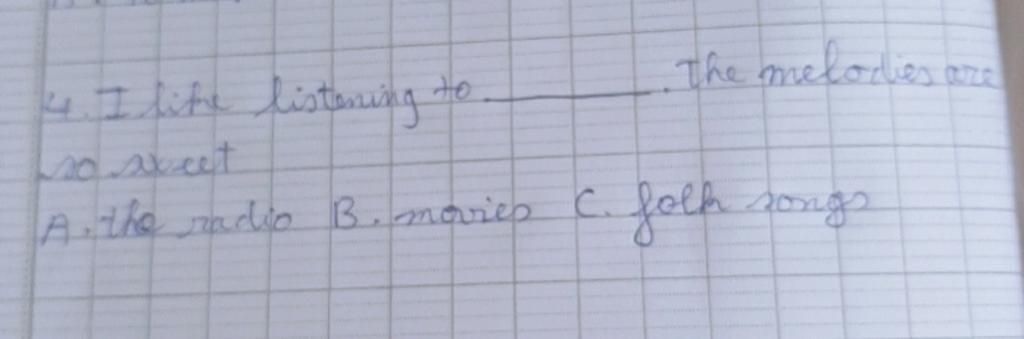 4. I like listening to ________. The melodies are
so sweet
A. the radio B. movies C. folk songs